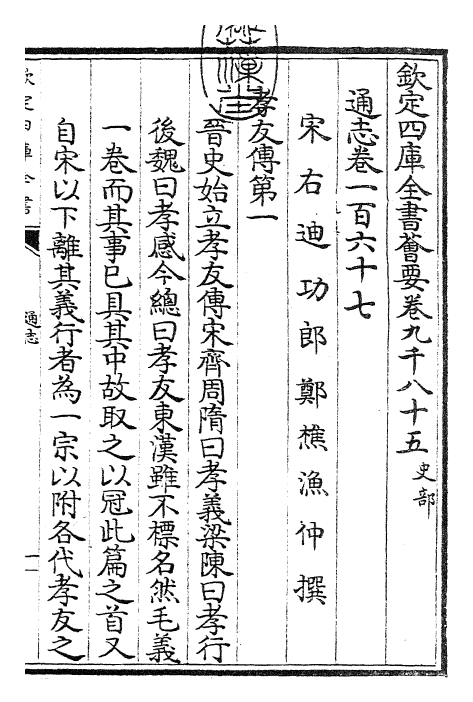 欽定四庫全書薈要卷九千八十五 史部
通志卷一百六十七
宋右迪功郎鄭樵漁仲撰
孝友傳第一
晉史始立孝友傳宋齊周隋曰孝義梁陳曰孝行
後魏曰孝感今總曰孝友東漢雖不標名然毛義
一卷而其事已具其中故取之以冠此篇之首又
自宋以下離其義行者為一宗以附各代孝友之
欽定四庫全書
通志
一